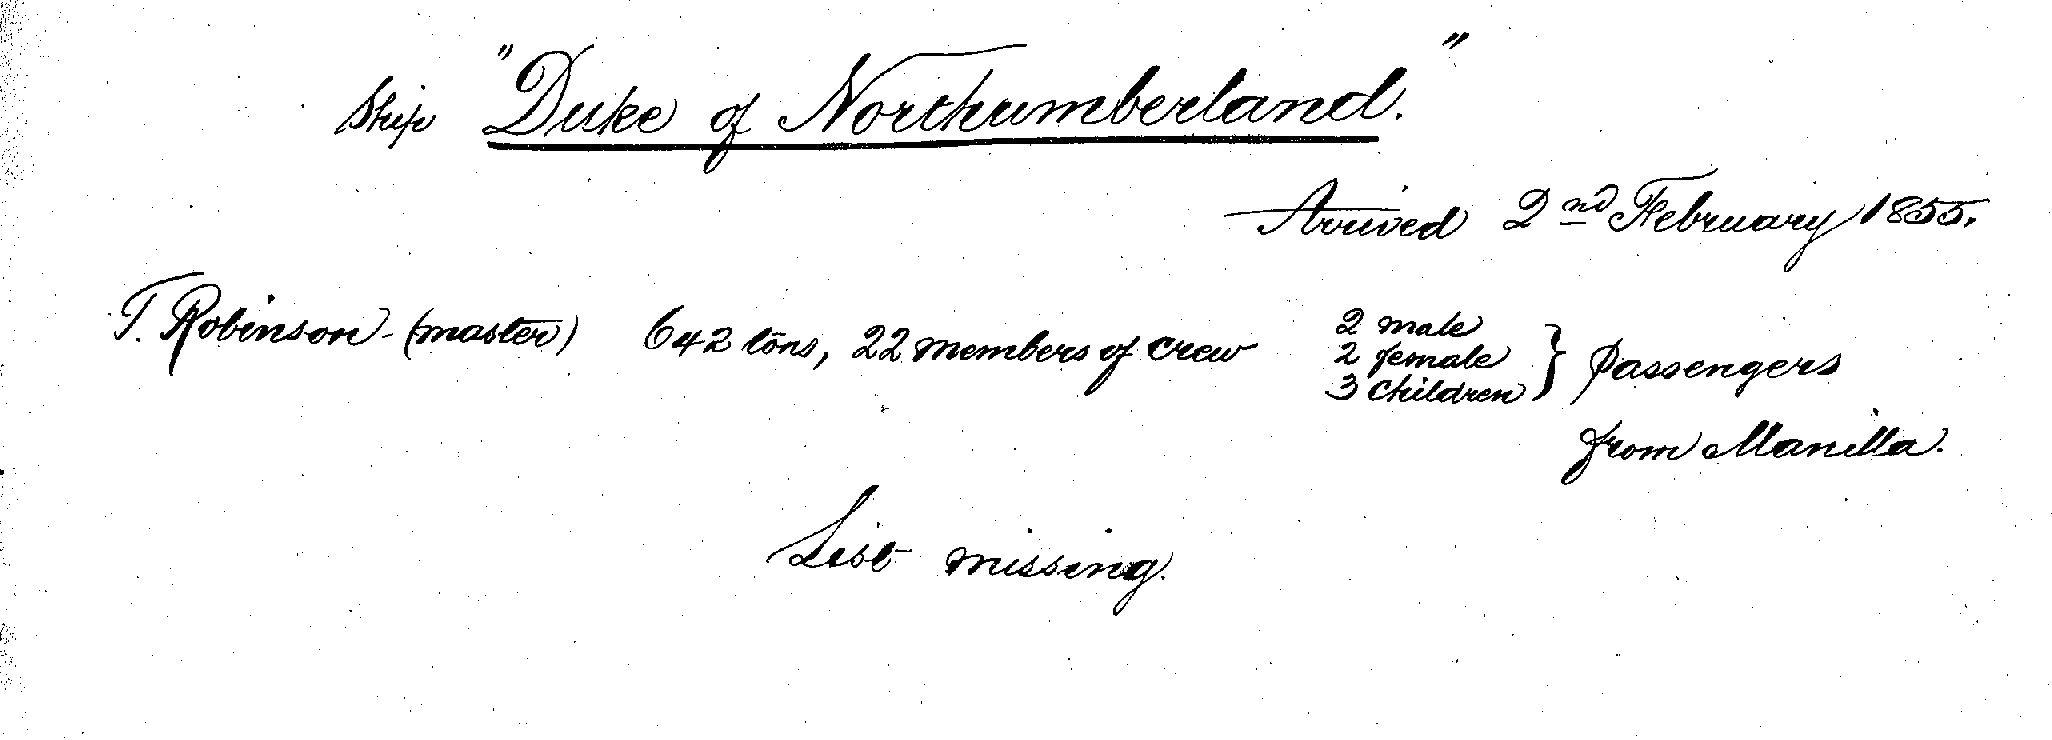 Ship "Duke of Northumberland."
Arrived 2nd February 1855.
T. Robinson - (master) 642 tons, 22 members of crew
2 male
2 female
3 children } passengers
from Manilla.
List missing.